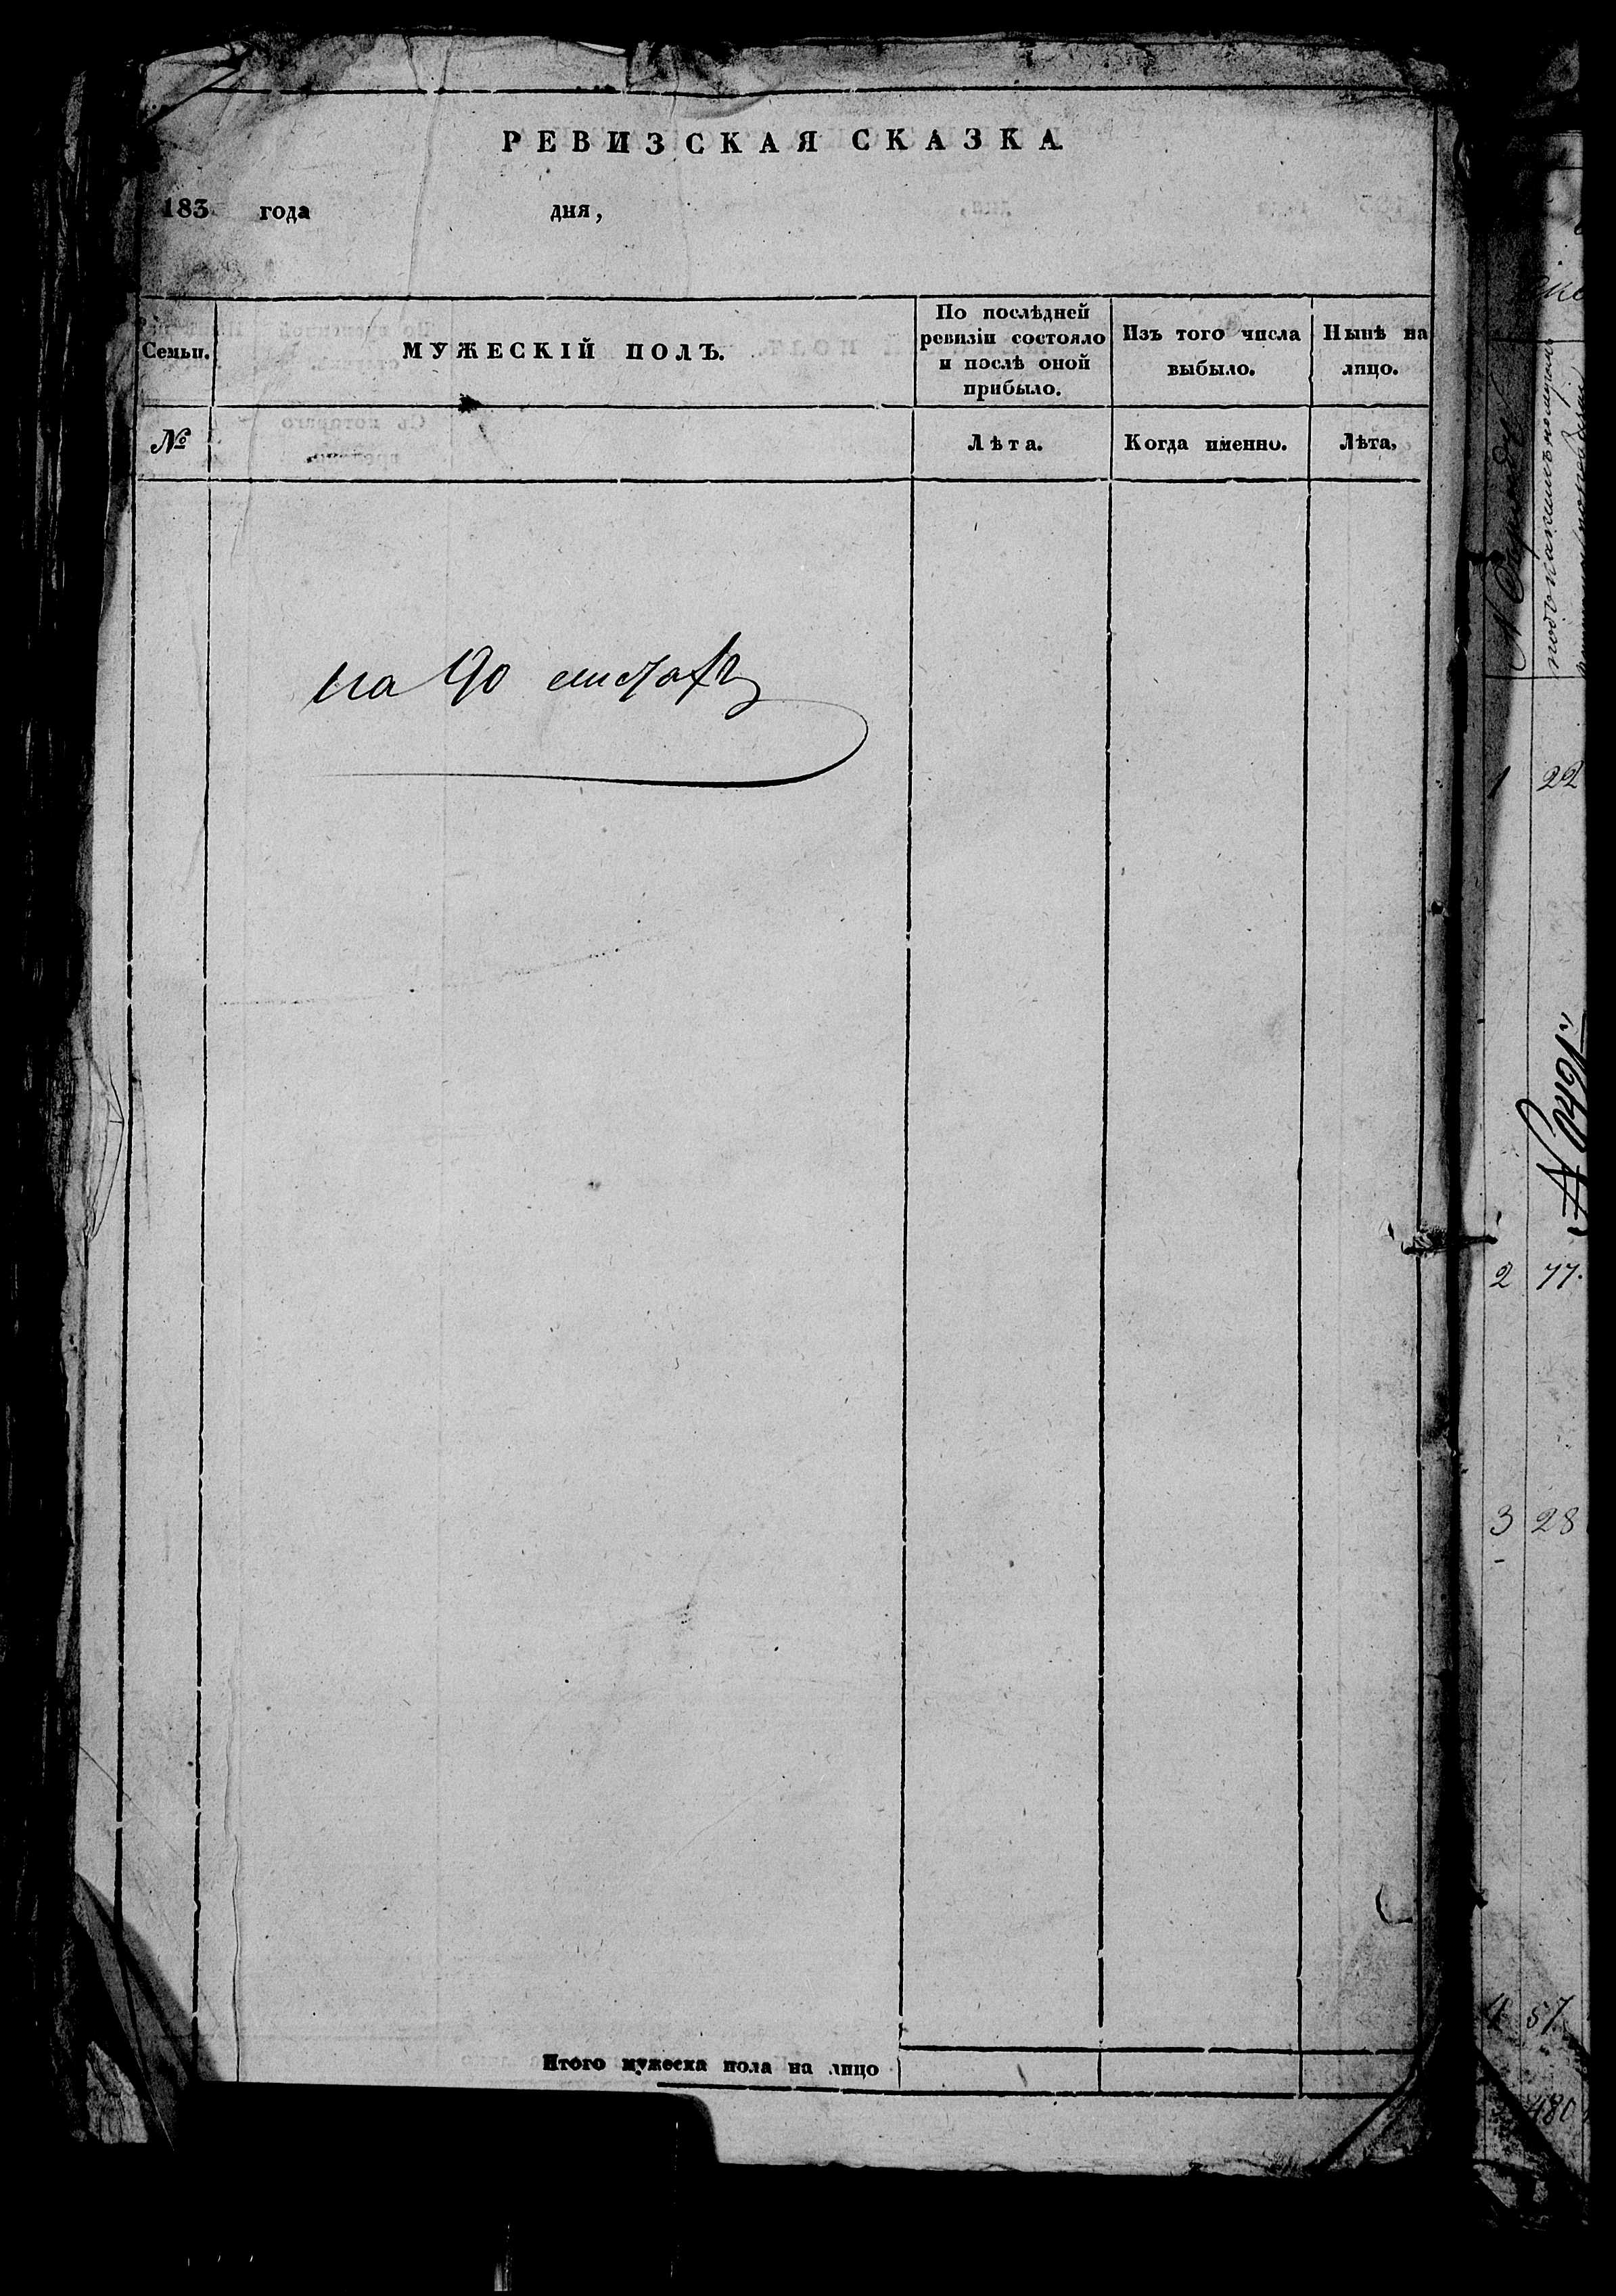 РЕВИЗСКАЯ СКАЗКА.
183 года дня,
Семьи.
МУЖЕСКІЙ ПОЛЪ.
По послѣдней
ревизіи состояло
и послѣ оной
прибыло.
Изъ того числа
выбыло.
Нынѣ на
лицо.
№
Лѣта.
Когда именно.
Лѣта,
на 90 листахъ
Итого мужеска пола на лицо
1 22
2 77.
3 28
4 57
480